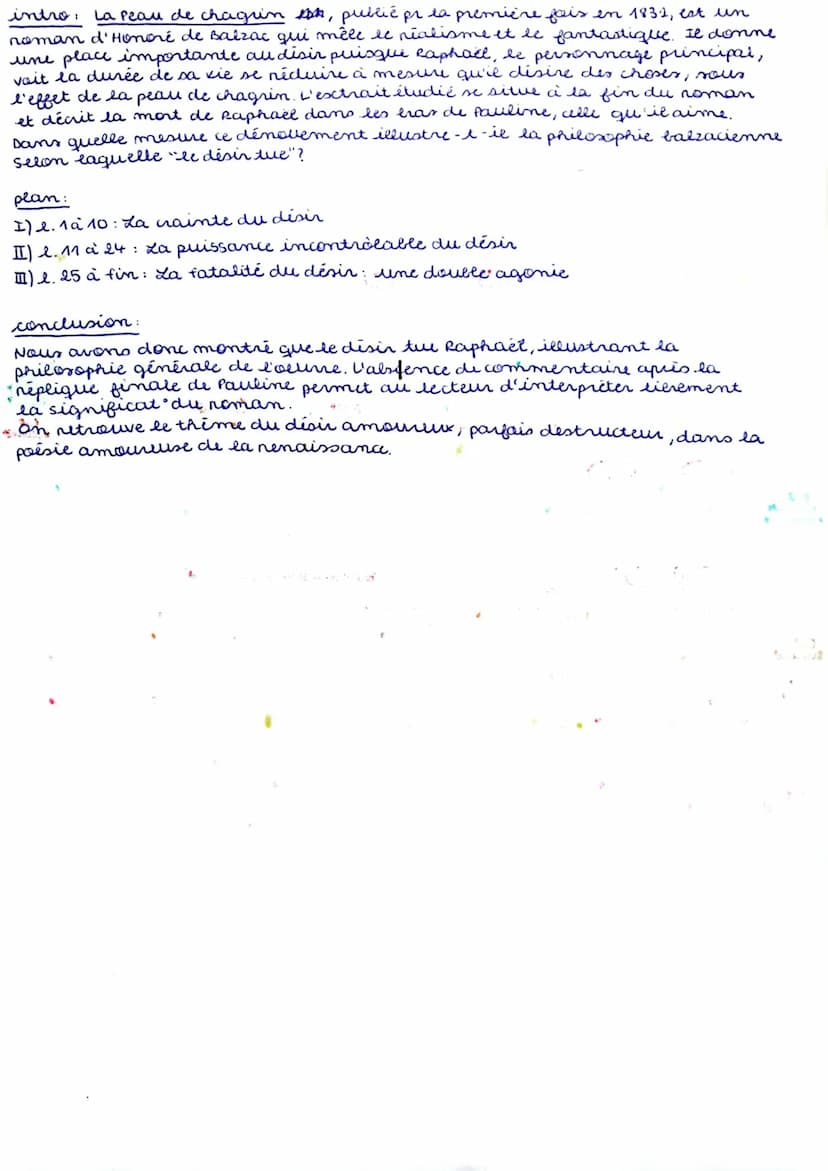 intro : La Peau de chagrin, publié pr la première fois en 1831, est un
roman d'Honoré de Balzac qui mêle le réalisme et le fantastique. Il donne
une place importante au désir puisque Raphaël, le personnage principal,
voit la durée de sa vie se réduire à mesure qu'il désire des choses, sous
l'effet de la peau de chagrin. L'extrait étudié se situe à la fin du roman
et décrit la mort de Raphaël dans les bras de Pauline, celle qu'il aime.
Dans quelle mesure ce dénouement illustre-t-il la philosophie balzacienne
selon laquelle "le désir tue"?
plan :
I) l. 1 à 10 : La crainte du désir
II) l. 11 à 24 : La puissance incontrôlable du désir
III) l. 25 à fin : La fatalité du désir : une double agonie
conclusion :
Nous avons donc montré que le désir tue Raphaël, illustrant la
philosophie générale de l'oeuvre. L'absence de commentaire après la
réplique finale de Pauline permet au lecteur d'interpréter librement
la significat° du roman.
On retrouve le thème du désir amoureux, parfois destructeur, dans la
poésie amoureuse de la renaissance.